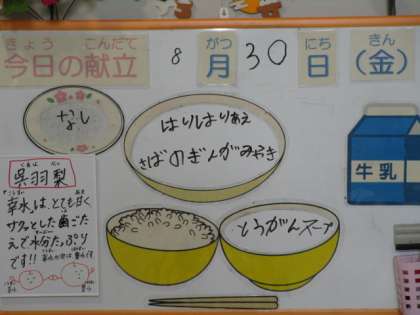 きょう こんだて がつ にち きん
今日の献立 8月30日(金)
なし
はりはりあえ
さばのぎんがみやき
牛乳
くれは なし
呉羽梨
幸水は、とても甘く
サクッとした歯ごた
えで水分たっぷり
です!!
とうがんスープ